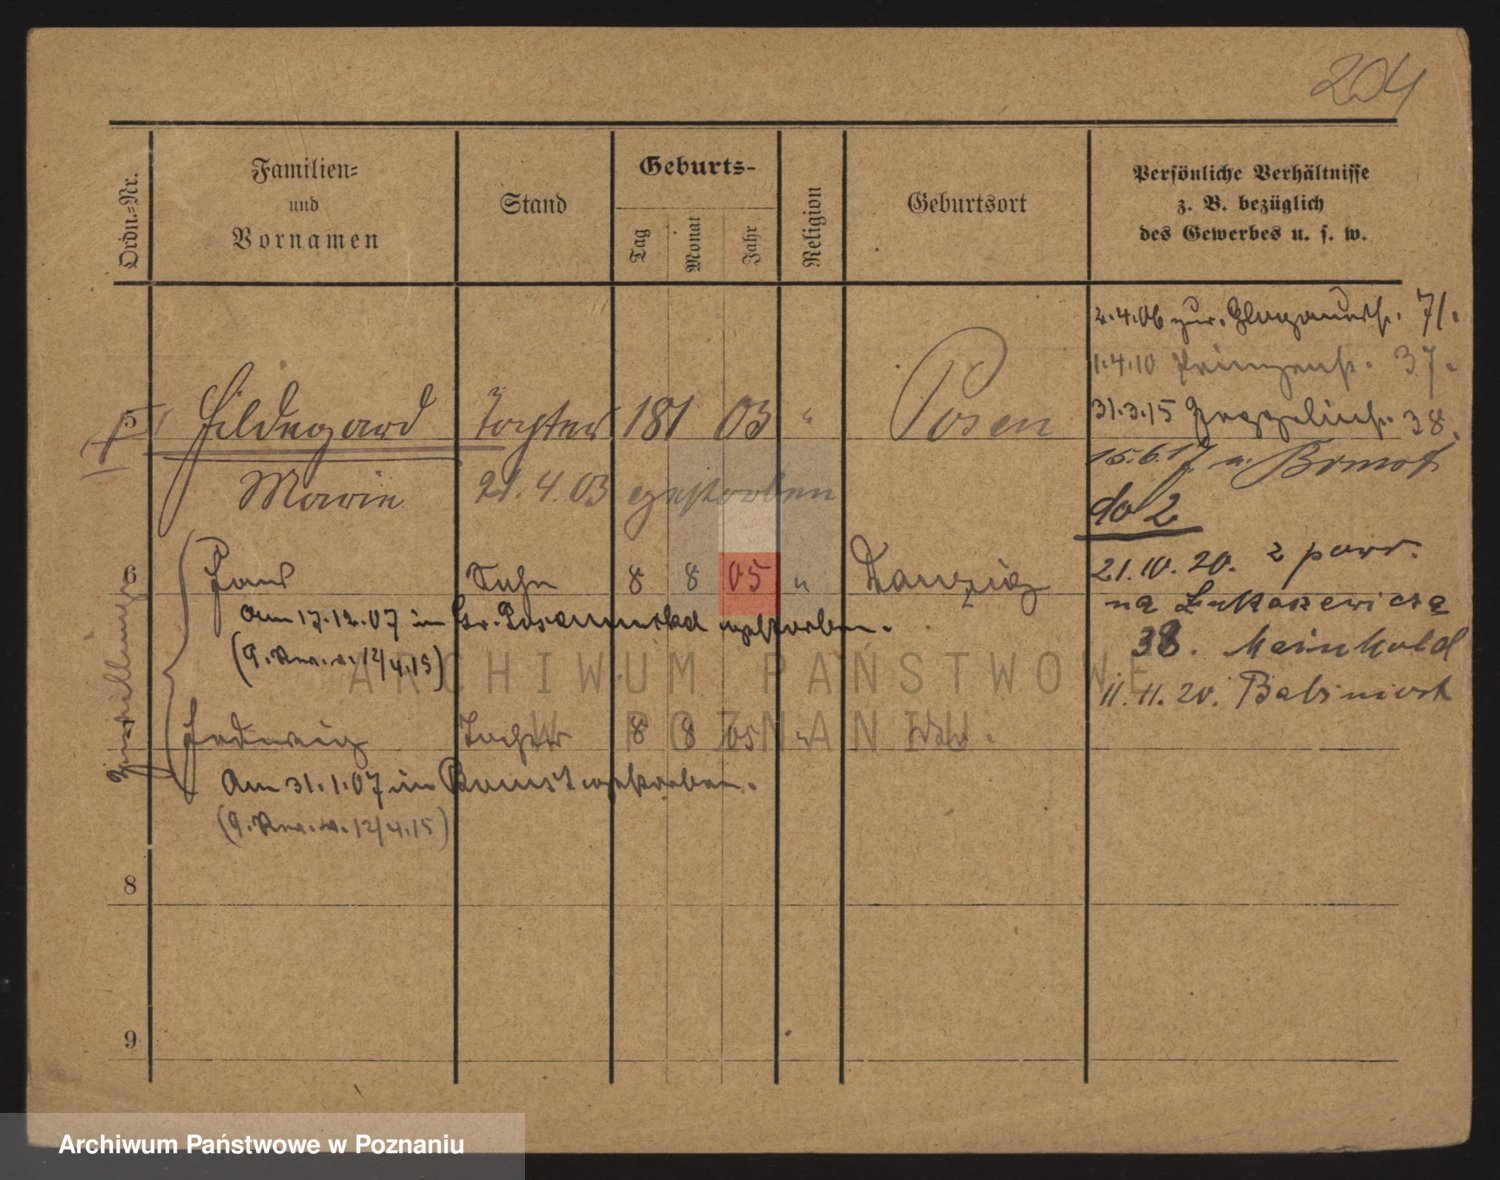 204
Ordn.-Nr.
Familien-
und
Vornamen
Stand
Geburts-
Tag
Monat
Jahr
Religion
Geburtsort
Persönliche Verhältnisse
z. B. bezüglich
des Gewerbes u. s. w.
2.4.06 zur. Glogauerstr. 71.
1.4.10 Prinzenstr. 37.
31.3.15 Zeppelinstr. 38.
5 Hildegard Tochter 18 1 03 " Posen
15.6.17 n. Bomst
Marie 21.4.03 gestorben
do 2
21.10.20. z powr.
6 Paul Sohn 8 8 05 " Danzig
na Łukaszewicza
am 17.12.07 in gestorben.
38. Meinhold
(9. Rev. v. 12/4.15)
11.11.20. Babimost
Zwillinge
Hedwig Tochter 8 8 05 "
Am 31.1.07 in Bomst gestorben.
(9. Rev. v. 12/4.15)
8
9
ARCHIWUM PAŃSTWOWE
W POZNANIU
Archiwum Państwowe w Poznaniu